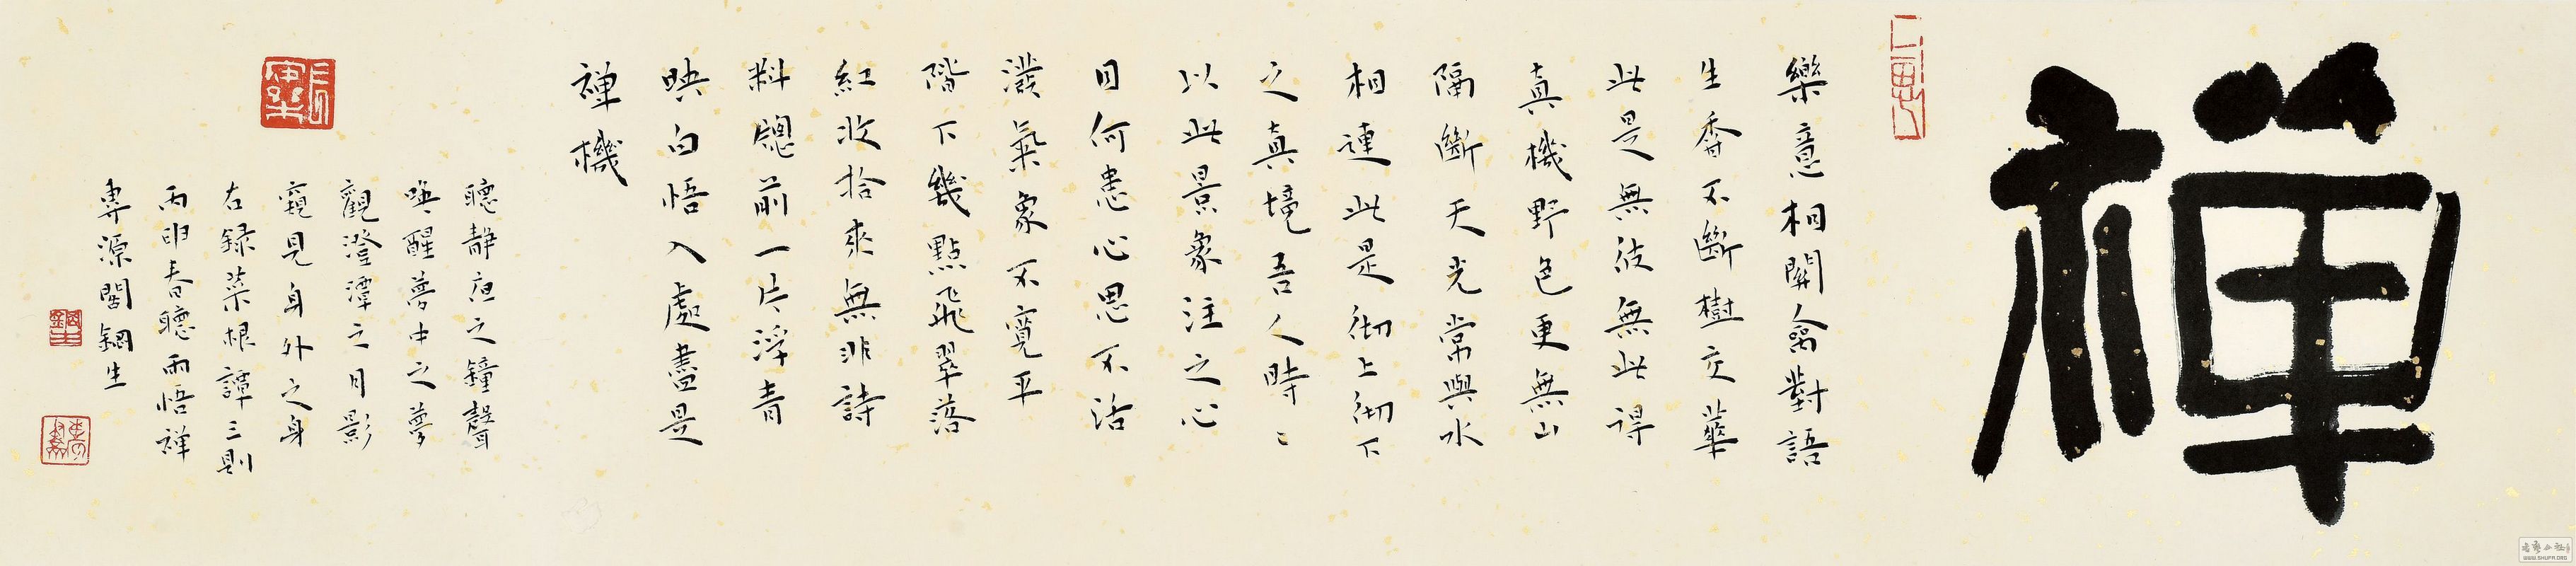 禪
樂意相關禽對語
生香不斷樹交華
此是無彼無此得
真機野色更無山
隔斷天光常與水
相連此是彻上彻下
之真境吾人時〻
以此景象注之心
目何患心思不活
潑氣象不寬平
階下幾點飛翠落
紅收拾來無非詩
料牕前一片浮青
映白悟入處盡是
禪機
聽靜夜之鐘聲
喚醒夢中之夢
觀澄潭之月影
窺見身外之身
右録菜根譚三則
丙申春聽雨悟禪
專源閣鋼生
WWW.SHUFA.ORG